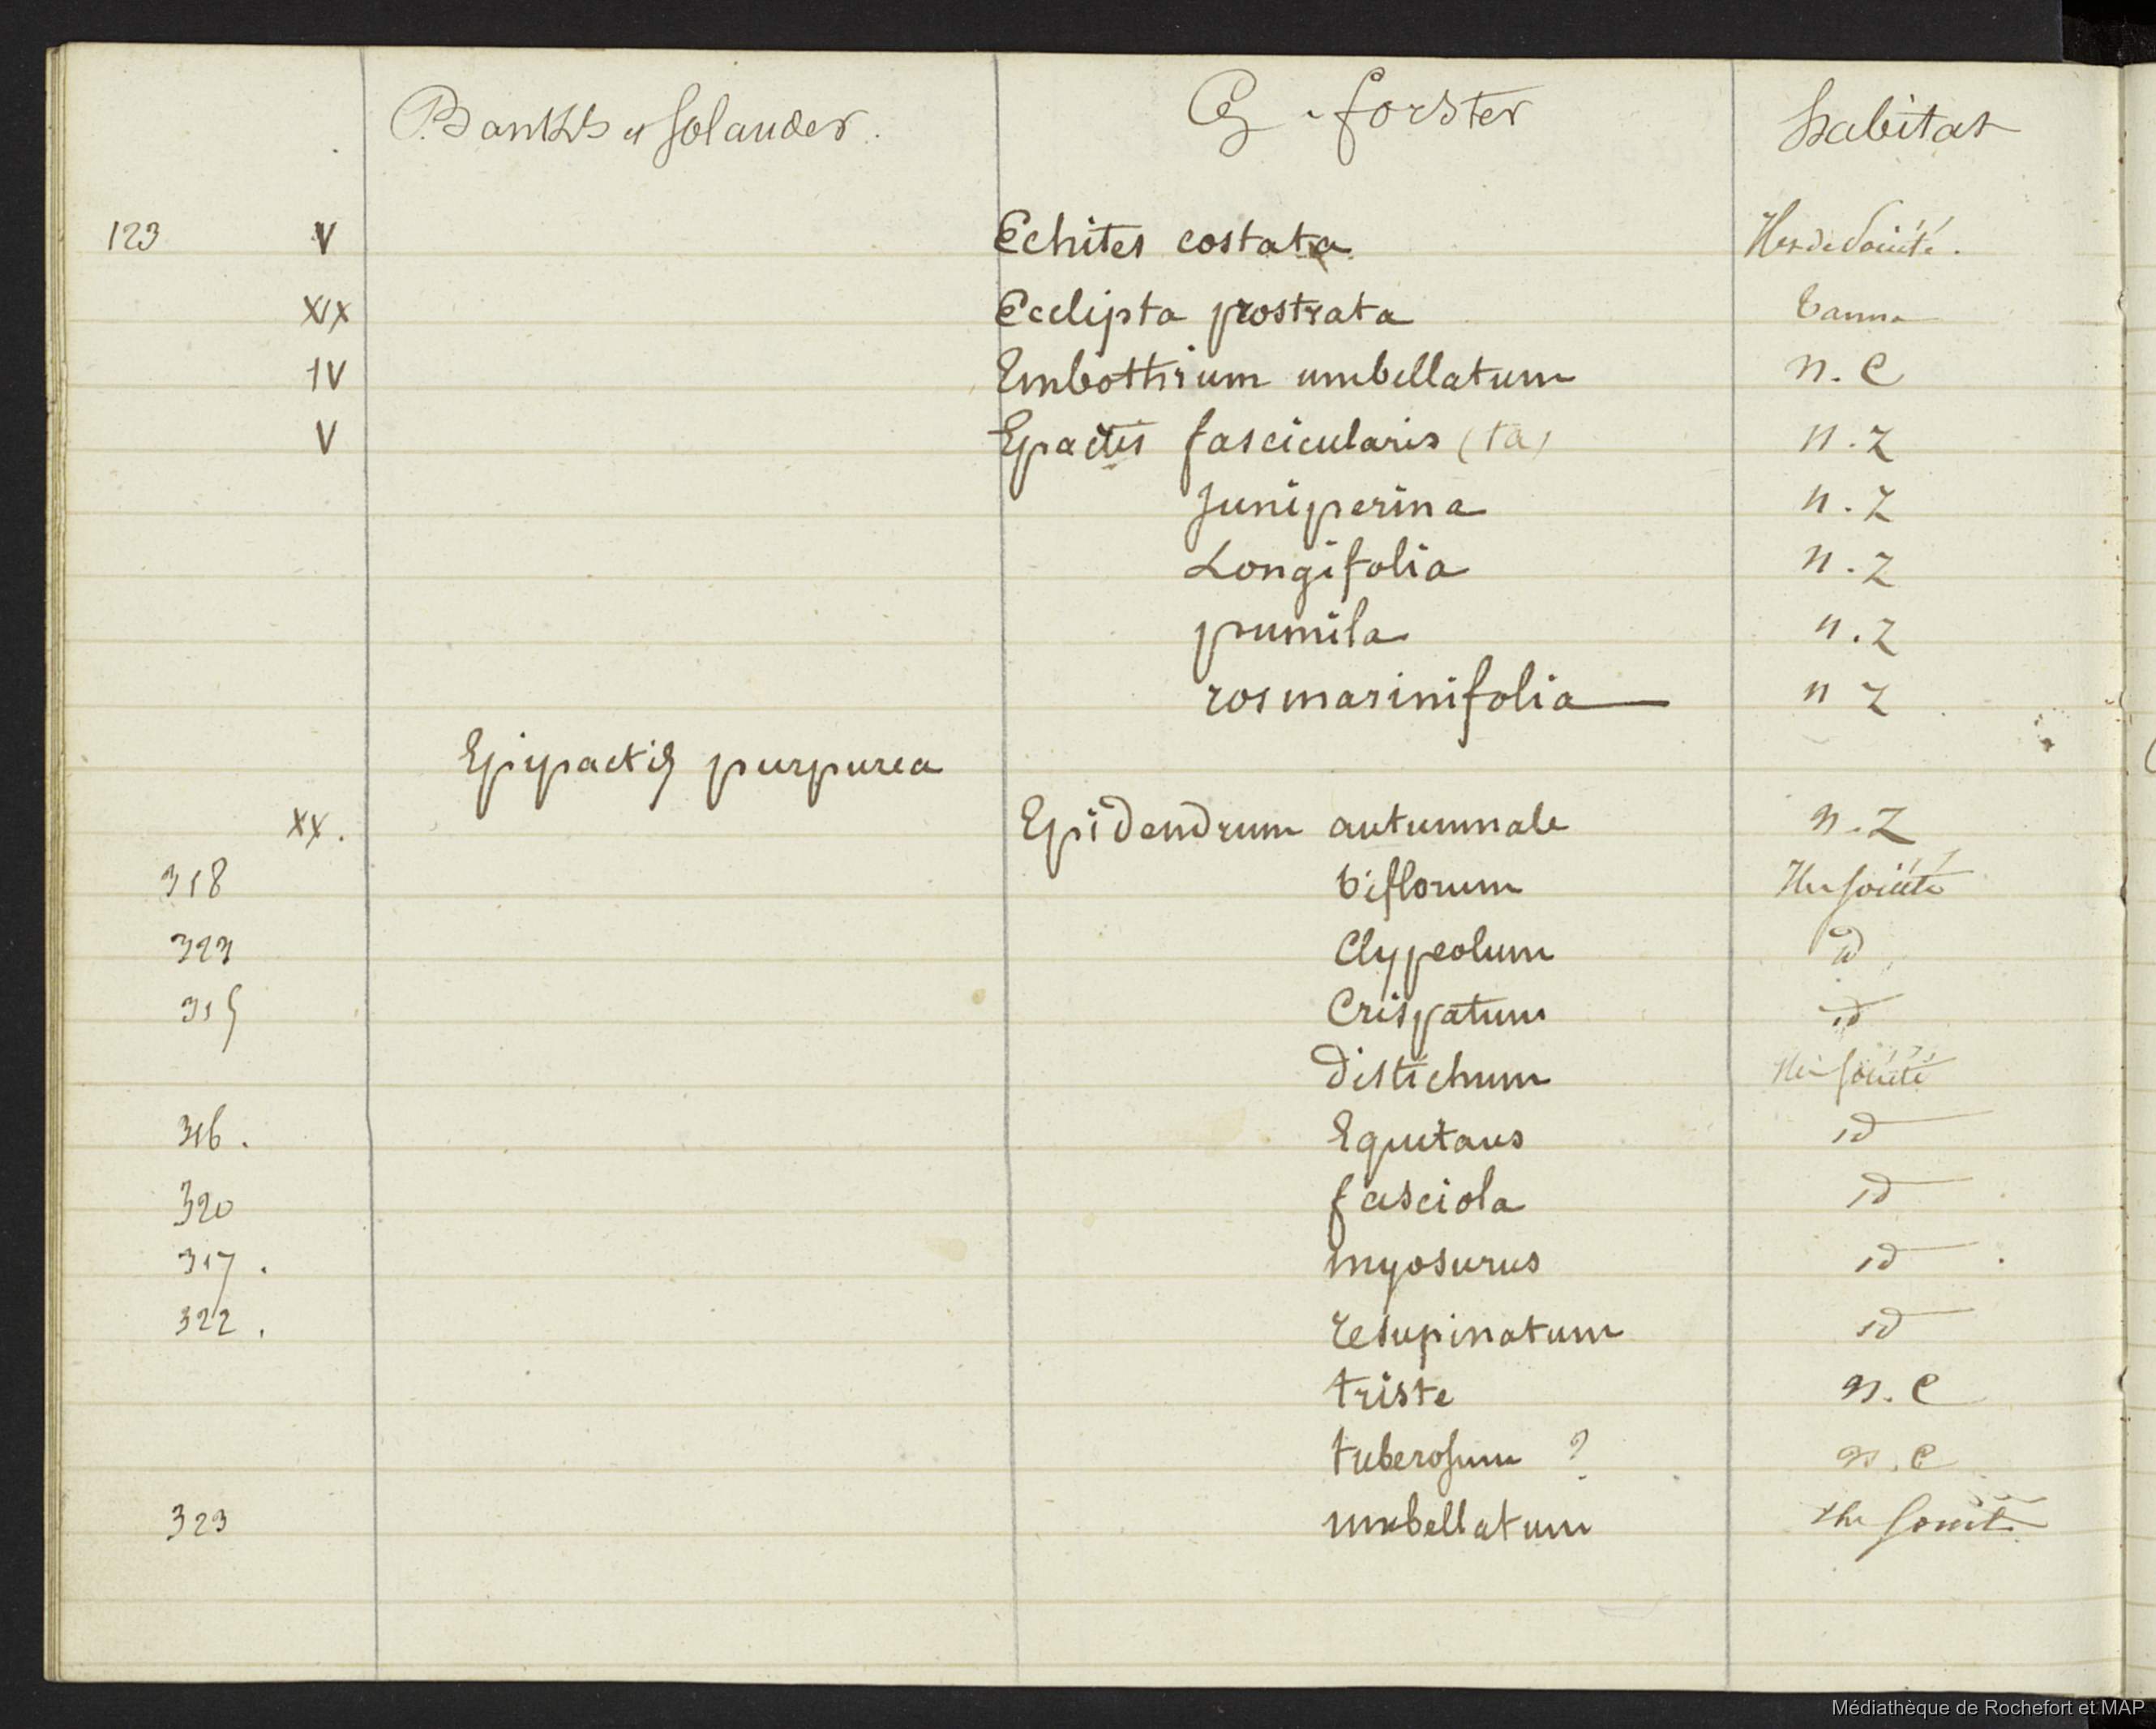 Banks et Solander. G. forster habitat
123 V Echites costata Iles de Société.
XIX Ecclipta prostrata Tanna
IV Embothrium umbellatum n. C
V Epactis fascicularis (ta) n. Z
Juniperina n. Z
Longifolia n. Z
pumila n. Z
rosmarinifolia n Z
Epipactis purpurea
XX. Epidendrum autumnale n. Z
318 biflorum Iles Société
323 Clypeolum id
315 Crispatum id
distichum Iles Société
316. Equitans id
320 fasciola id
317. myosurus id
322. resupinatum id
triste n. C
tuberosum ? n. C
323 umbellatum Iles Société
Médiathèque de Rochefort et MAP